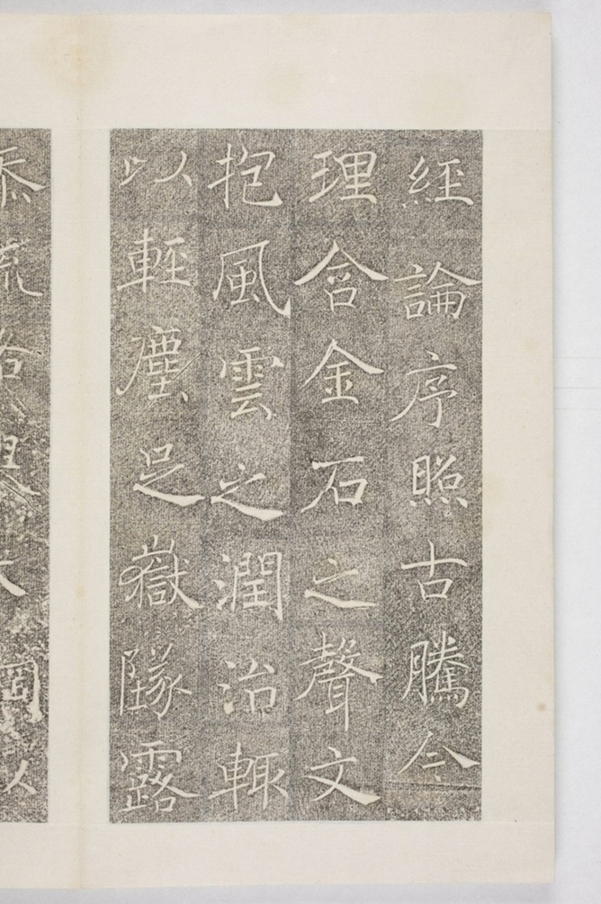 經論序照古騰今
理含金石之聲文
抱風雲之潤治輒
以輕塵足嶽隊露